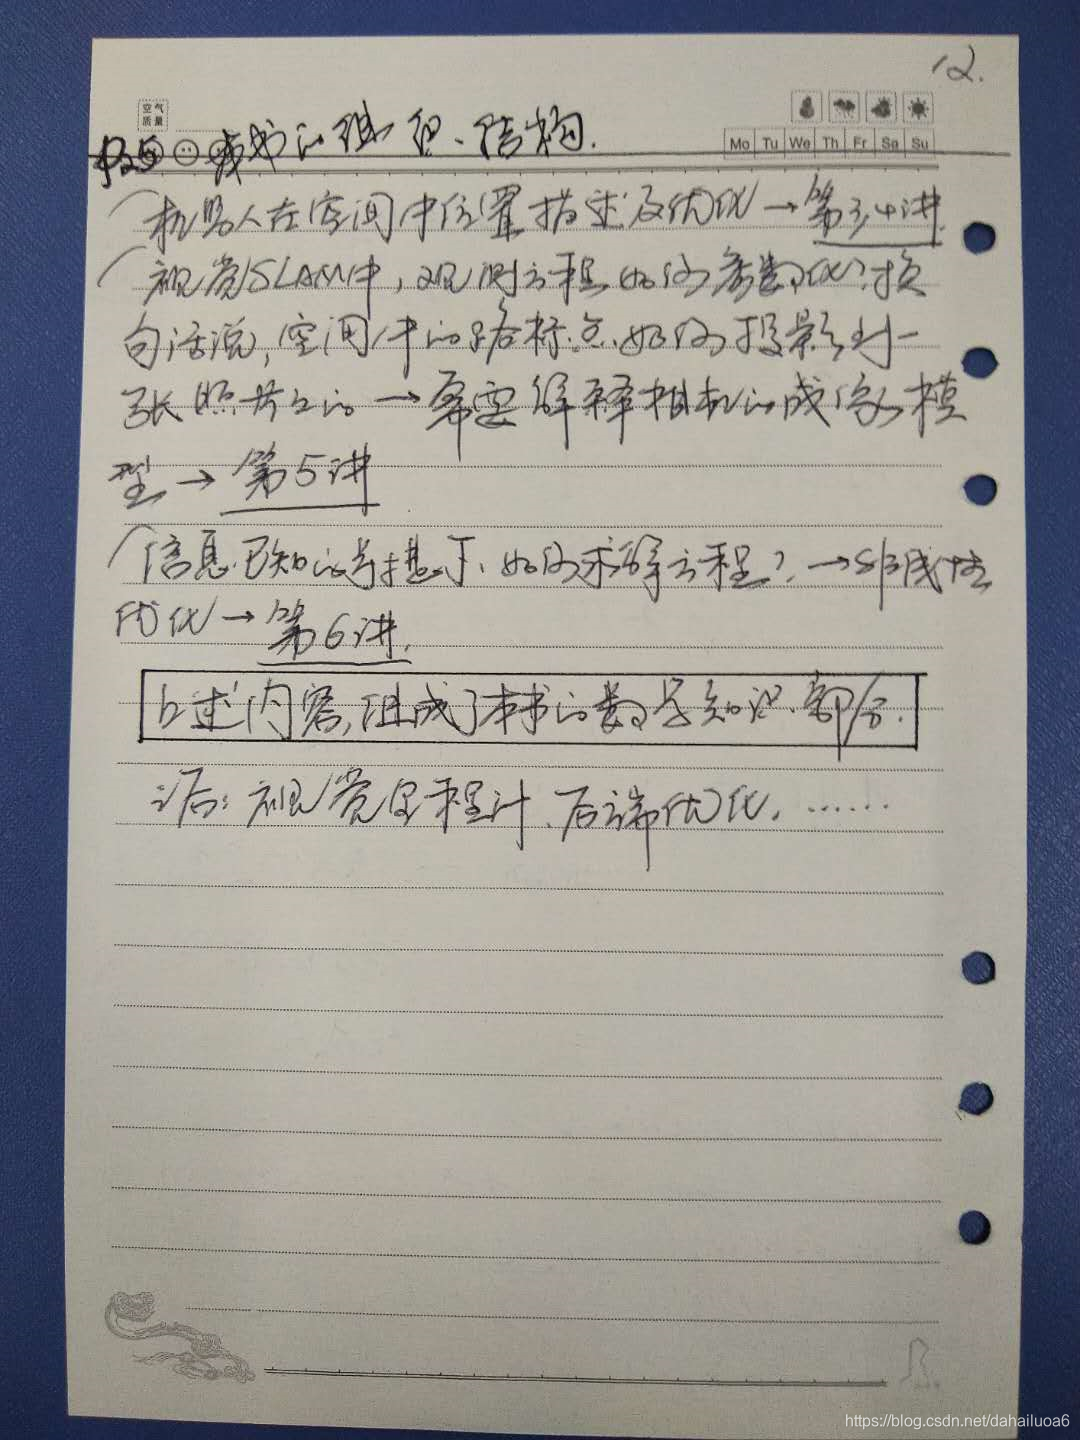 12.
空气
质量
Mo Tu We Th Fr Sa Su
P25 本书的组织、结构.
机器人在空间中位置描述及优化→第3,4讲.
视觉SLAM中,观测方程如何参数化?换
句话说,空间中的路标点如何投影到一
张照片上的→需要解释相机的成像模
型→第5讲
信息已知的前提下、如何求解方程?→非线性
优化→第6讲.
上述内容,组成了本书的数学知识部分.
之后:视觉里程计、后端优化. ……
https://blog.csdn.net/dahailuoa6